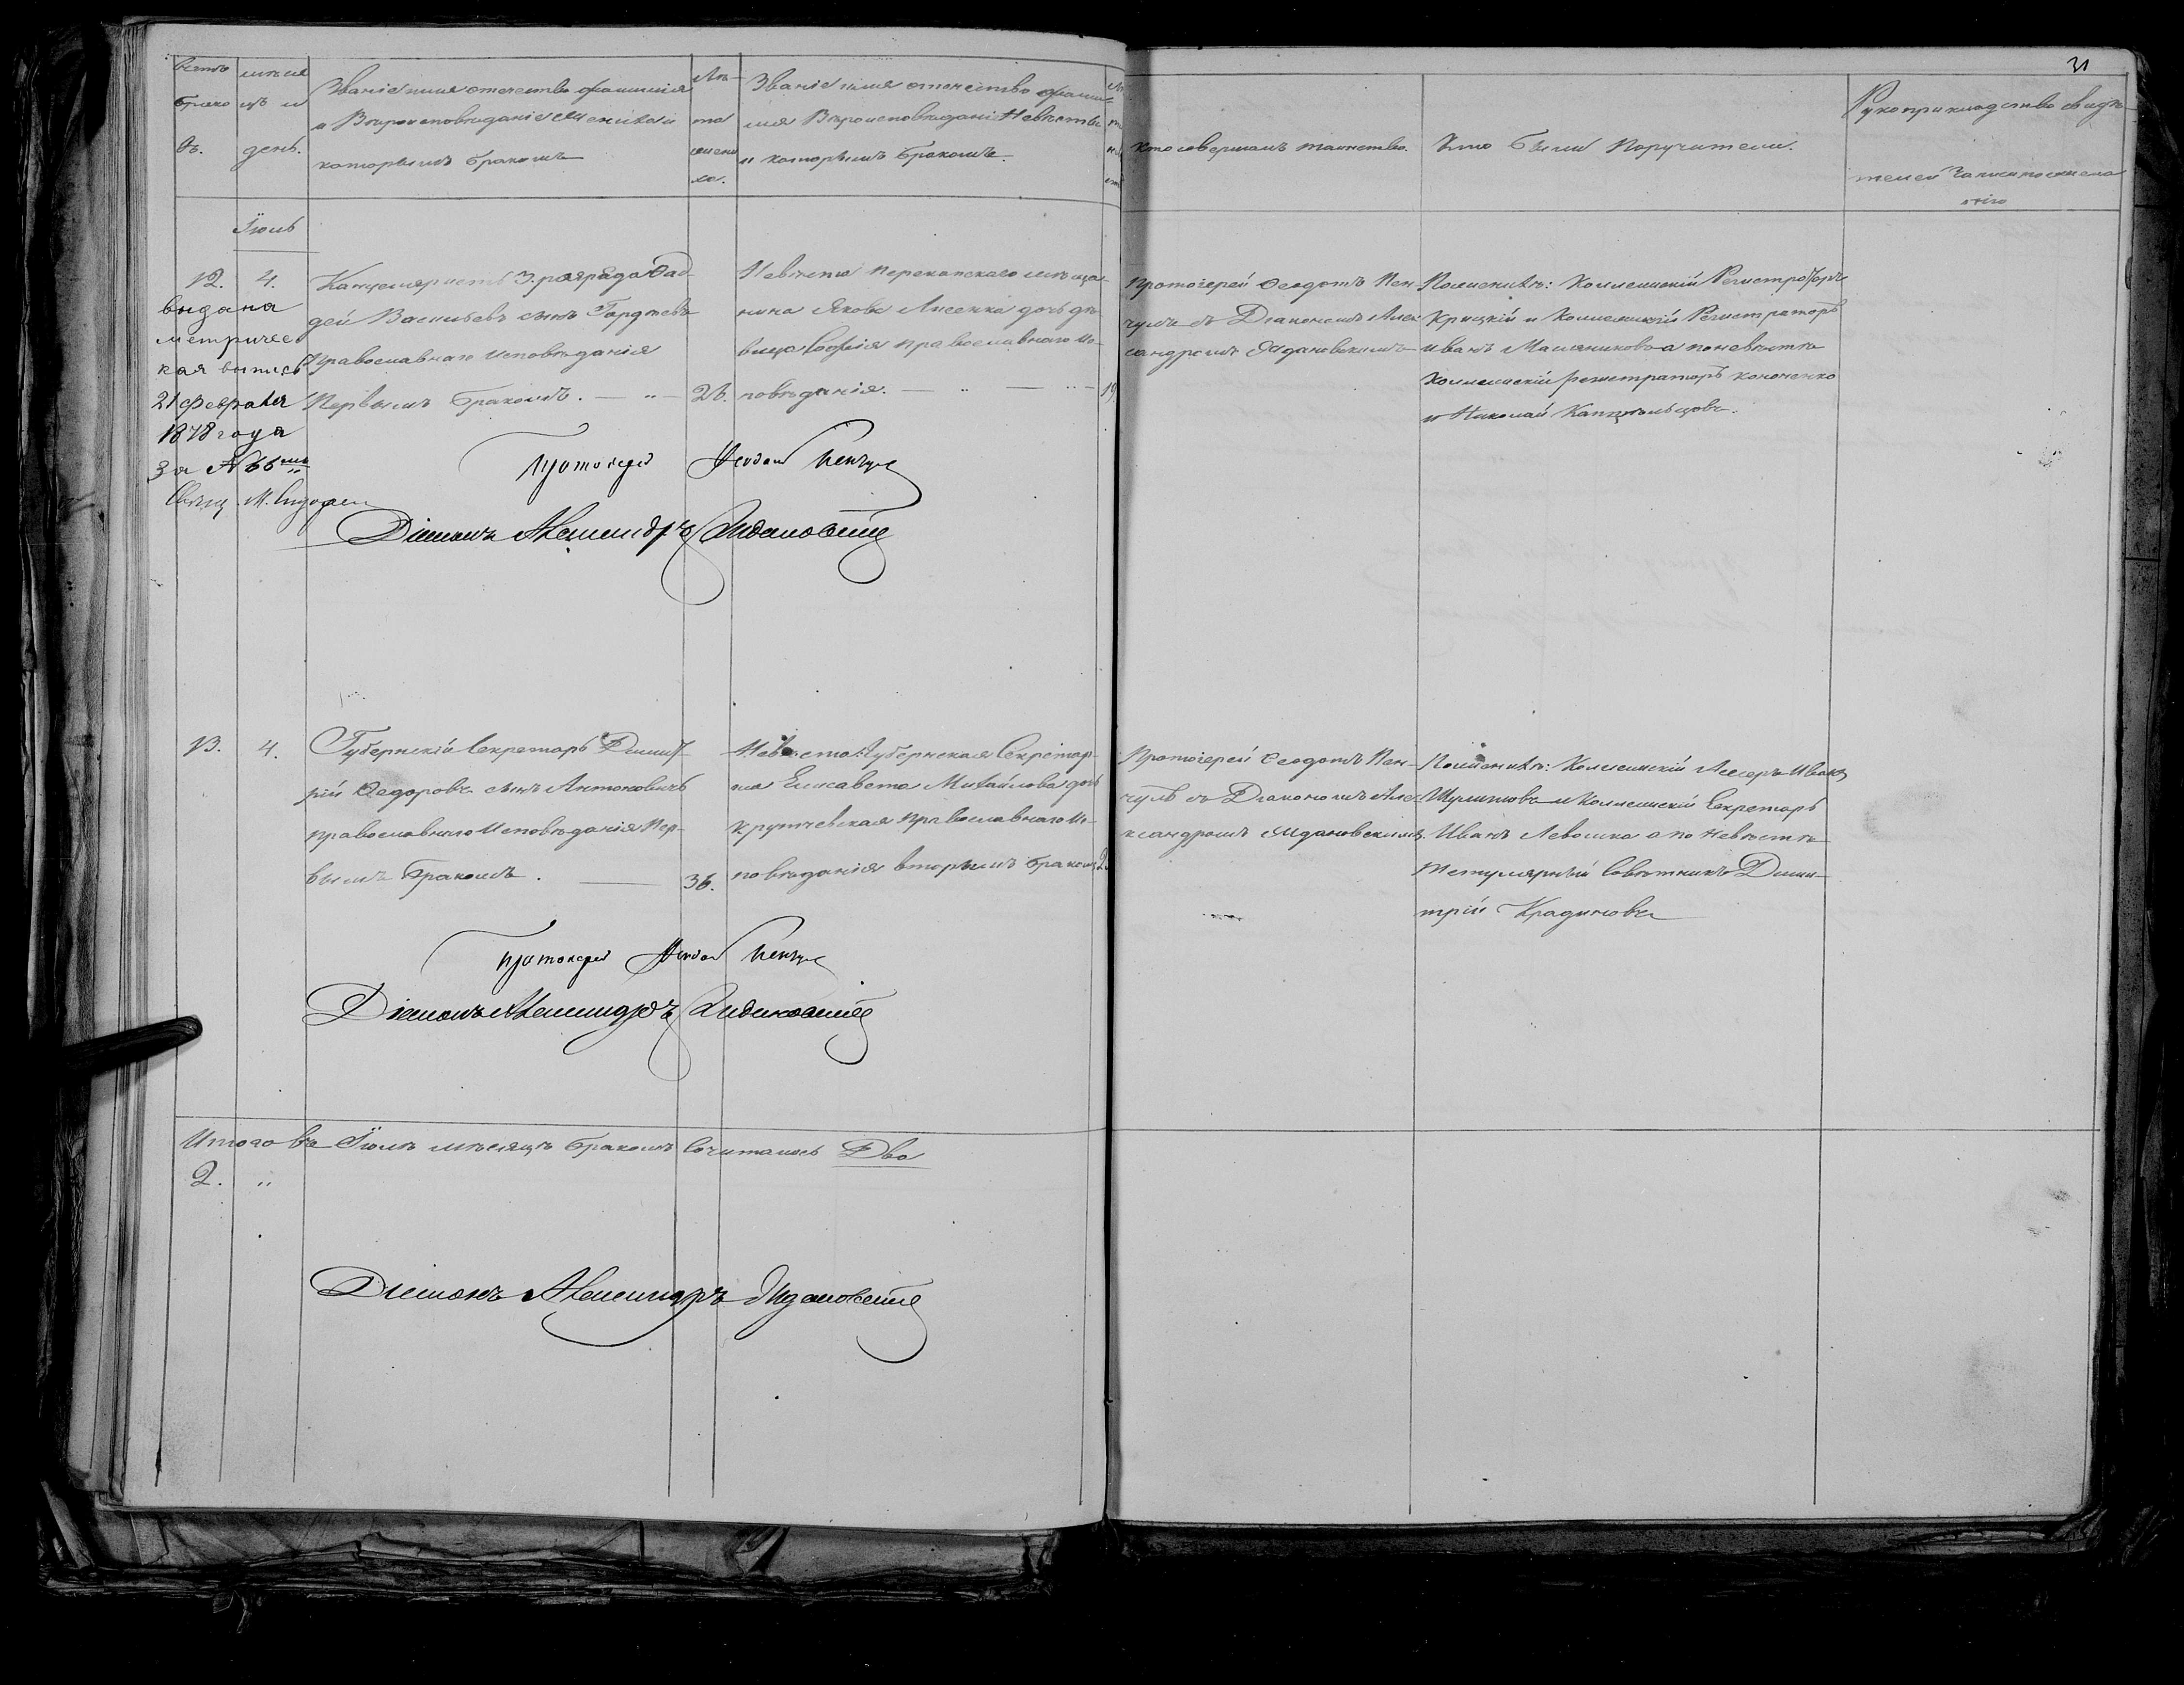 31
Счетъ месяцъ и Званіе имя отечество фамилія Лѣ- Званіе имя отечество фами-
брако и Вѣроисповѣданіе Жениха и та лія Вѣроисповѣданіе Невѣсты
въ. день. которымъ бракомъ жени и которымъ бракомъ.
ха.
Кто совершалъ таинство. Кто были Поручители.
Рукоприкладство свидѣ-
телей записи по желанію
Іюль
12. 4.
выдана
метричес
кая выпись
21 февраля
1878 года
За № 66
Свящ. М.
Канцеляристъ 3. разряда Фад-
дей Васильевъ сынъ Гордѣевъ
Православнаго Исповѣданія
Первымъ бракомъ. 26.
Невѣста Перекопскаго мѣща-
нина Якова Лисенка дочь дѣ-
вица Софія Православнаго Ис-
повѣданія. 19
Протоіерей Ѳеодотъ Пен-
чулъ съ Діакономъ Алек-
сандромъ Ждановскимъ
По женихѣ: Коллежскій Регистраторъ
Крицкій и Коллежскій Регистраторъ
Иванъ Масленниковъ а по невѣстѣ
Коллежскій регистраторъ Кононенко
и Николай Капцельцовъ.
Протоіерей Ѳеодотъ Пенчулъ
Діаконъ Александръ Ждановскій
13. 4.
Губернскій Секретарь Димит-
рій Ѳедоровъ сынъ Антоновичъ
Православнаго Исповѣданія Пер-
вымъ бракомъ. 36.
Невѣста Губернская Секретар-
ша Елисавета Михайлова дочь
Крутчевская Православнаго Ис-
повѣданія вторымъ бракомъ
Протоіерей Ѳеодотъ Пен-
чулъ съ Діакономъ Але-
ксандромъ Ждановскимъ.
По женихѣ: Коллежскій Асесоръ Иванъ
Шулитовъ и Коллежскій Секретарь
Иванъ Левошко а по Невѣстѣ
Титулярный Совѣтникъ Дими-
трій Крадиновъ
Протоіерей Ѳеодотъ Пенчулъ
Діаконъ Александръ Ждановскій
Итого въ Іюлѣ мѣсяцѣ бракомъ Сочитались Два
2. "
Діаконъ Александръ Ждановскій